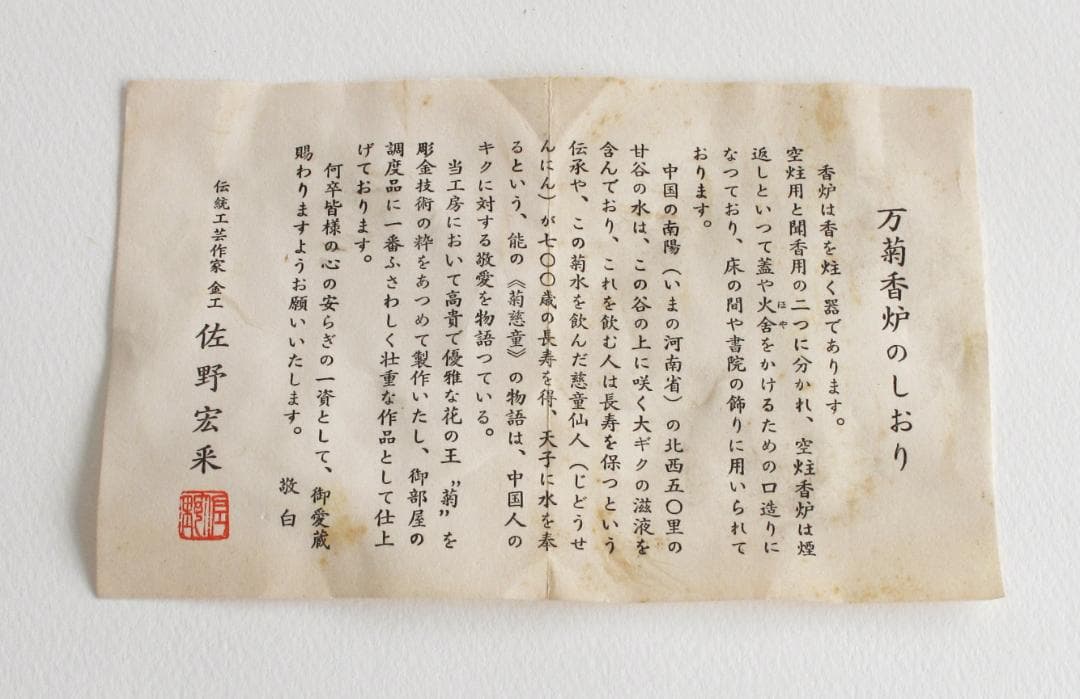 万菊香炉のしおり
香炉は香を炷く器であります。
空炷用と聞香用の二つに分かれ、空炷香炉は煙
返しといつて蓋や火舎をかけるための口造りに
ほや
なつており、床の間や書院の飾りに用いられて
おります。
中国の南陽（いまの河南省）の北西五〇里の
甘谷の水は、この谷の上に咲く大ギクの滋液を
含んでおり、これを飲む人は長寿を保つという
伝承や、この菊水を飲んだ慈童仙人（じどうせ
んにん）が七〇〇歳の長寿を得、天子に水を奉
るという、能の《菊慈童》の物語は、中国人の
キクに対する敬愛を物語つている。
当工房において高貴で優雅な花の王〝菊〟を
彫金技術の粋をあつめて製作いたし、御部屋の
調度品に一番ふさわしく壮重な作品として仕上
げております。
何卒皆様の心の安らぎの一資として、御愛蔵
賜わりますようお願いいたします。
敬白
伝統工芸作家 金工 佐野宏采